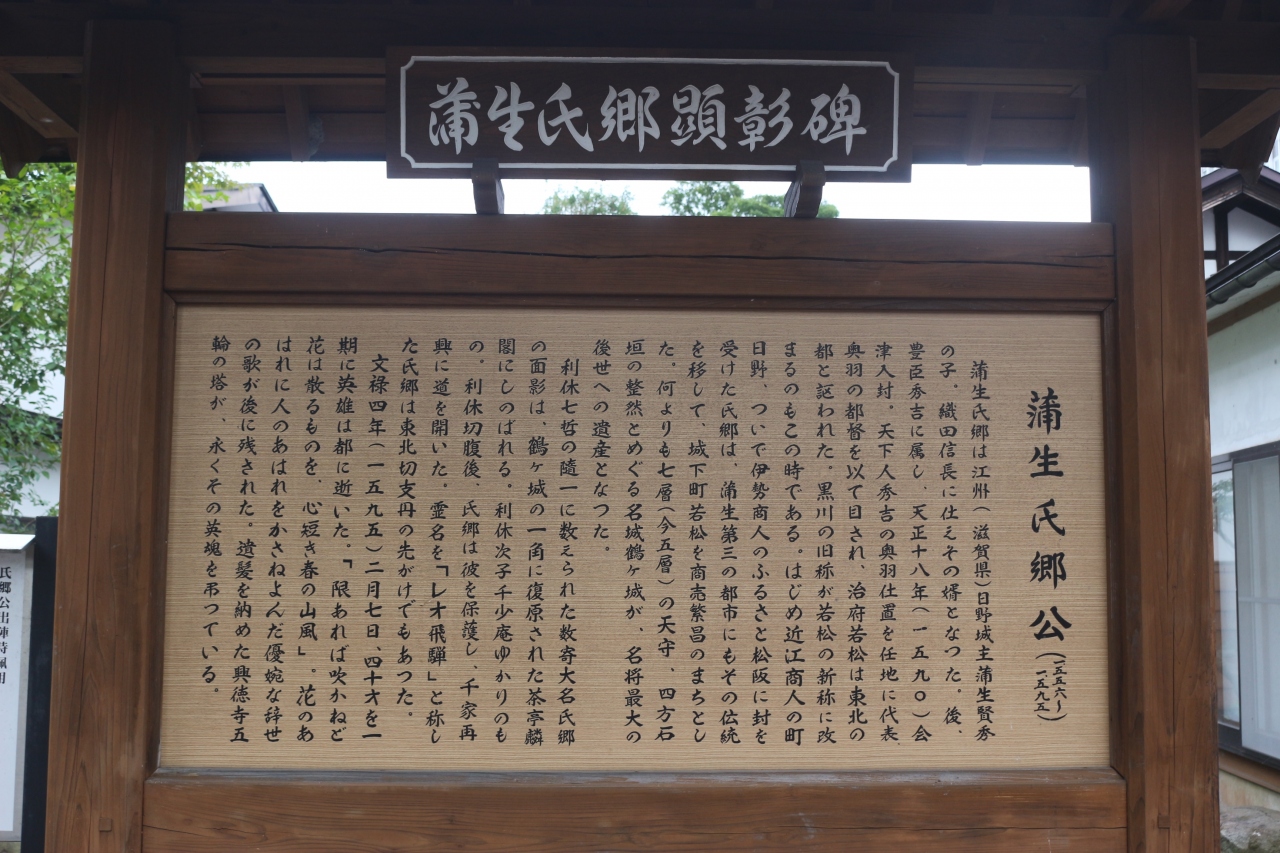 蒲生氏郷顕彰碑
蒲生氏郷公(一五五六〜一五九五)
蒲生氏郷は江州(滋賀県)日野城主蒲生賢秀
の子。織田信長に仕えその婿となつた。後、
豊臣秀吉に属し、天正十八年(一五九〇)会
津入封。天下人秀吉の奥羽仕置を任地に代表、
奥羽の都督を以て目され、治府若松は東北の
都と謳われた。黒川の旧称が若松の新称に改
まるのもこの時である。はじめ近江商人の町
日野、ついで伊勢商人のふるさと松阪に封を
受けた氏郷は、蒲生第三の都市にもその伝統
を移して、城下町若松を商売繁昌のまちとし
た。何よりも七層(今五層)の天守、四方石
垣の整然とめぐる名城鶴ヶ城が、名将最大の
後世への遺産となつた。
利休七哲の隨一に数えられた数寄大名氏郷
の面影は、鶴ヶ城の一角に復原された茶亭麟
閣にしのばれる。利休次子千少庵ゆかりのも
の。利休切腹後、氏郷は彼を保護し、千家再
興に道を開いた。霊名を「レオ飛騨」と称し
た氏郷は東北切支丹の先がけでもあつた。
文禄四年(一五九五)二月七日、四十才を一
期に英雄は都に逝いた。「限あれば吹かねど
花は散るものを、心短き春の山風」。花のあ
はれに人のあはれをかさねよんだ優婉な辞世
の歌が後に残された。遺髪を納めた興徳寺五
輪の塔が、永くその英魂を弔つている。
氏郷公出陣時佩用